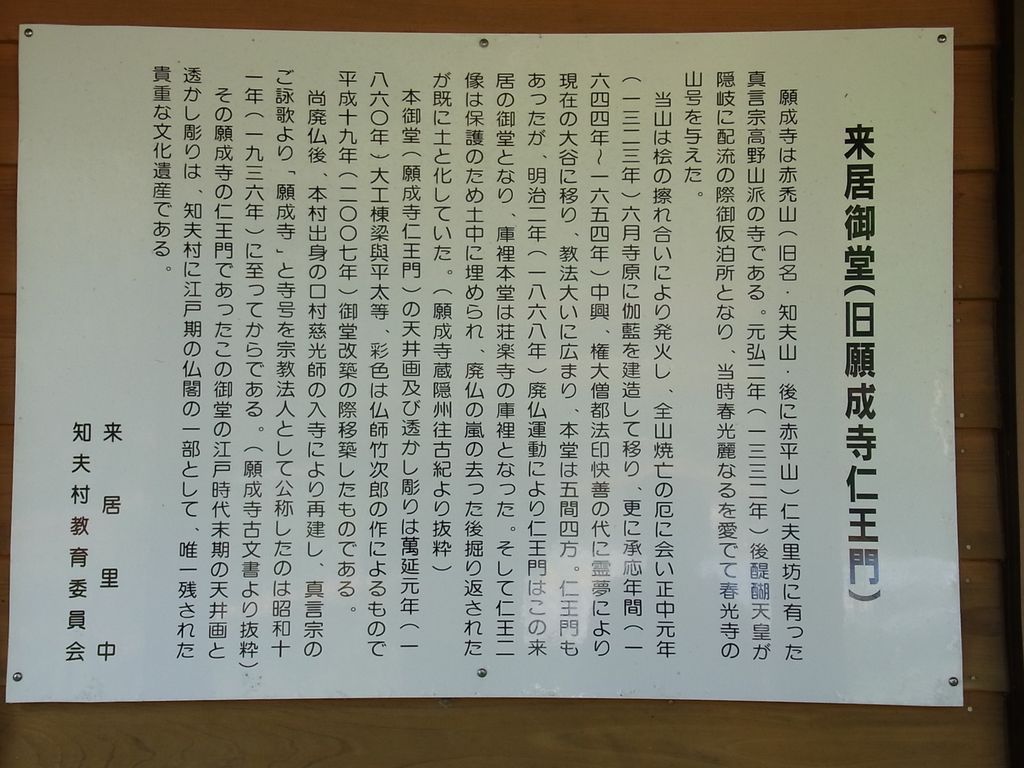 来居御堂(旧願成寺仁王門)
願成寺は赤禿山(旧名・知夫山・後に赤平山)仁夫里坊に有った
真言宗高野山派の寺である。元弘二年(一三三二年)後醍醐天皇が
隠岐に配流の際御仮泊所となり、当時春光麗なるを愛でて春光寺の
山号を与えた。
当山は桧の擦れ合いにより発火し、全山焼亡の厄に会い正中元年
(一三二三年)六月寺原に伽藍を建造して移り、更に承応年間(一
六四四年~一六五四年)中興、権大僧都法印快善の代に霊夢により
現在の大谷に移り、教法大いに広まり、本堂は五間四方。仁王門も
あったが、明治二年(一八六八年)廃仏運動により仁王門はこの来
居の御堂となり、庫裡本堂は荘楽寺の庫裡となった。そして仁王二
像は保護のため土中に埋められ、廃仏の嵐の去った後掘り返された
が既に土と化していた。(願成寺蔵隠州往古紀より抜粋)
本御堂(願成寺仁王門)の天井画及び透かし彫りは萬延元年(一
八六〇年)大工棟梁與平太等、彩色は仏師竹次郎の作によるもので
平成十九年(二〇〇七年)御堂改築の際移築したものである。
尚廃仏後、本村出身の口村慈光師の入寺により再建し、真言宗の
ご詠歌より「願成寺」と寺号を宗教法人として公称したのは昭和十
一年(一九三六年)に至ってからである。(願成寺古文書より抜粋)
その願成寺の仁王門であったこの御堂の江戸時代末期の天井画と
透かし彫りは、知夫村に江戸期の仏閣の一部として、唯一残された
貴重な文化遺産である。
来居里中
知夫村教育委員会